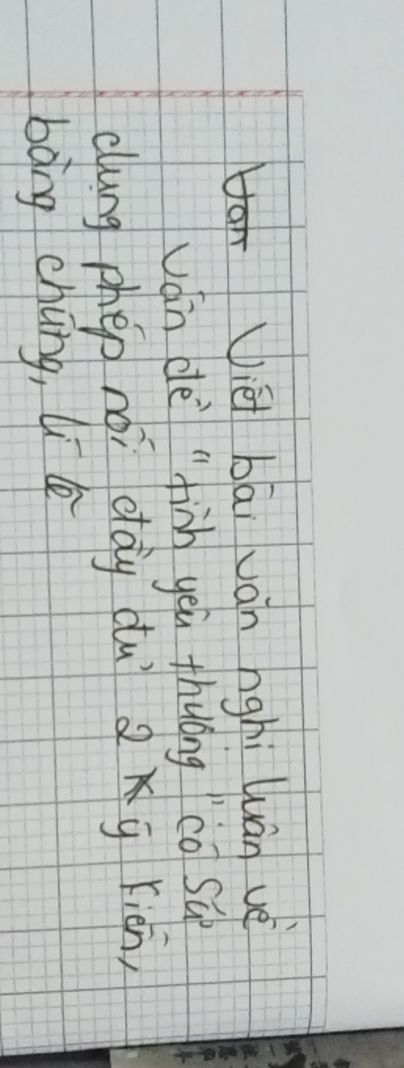 Viết bài văn nghị luận về
vấn đề "tình yêu thương" có sử
dụng phép nối đầy đủ 2 ý kiến,
bằng chứng, lí lẽ